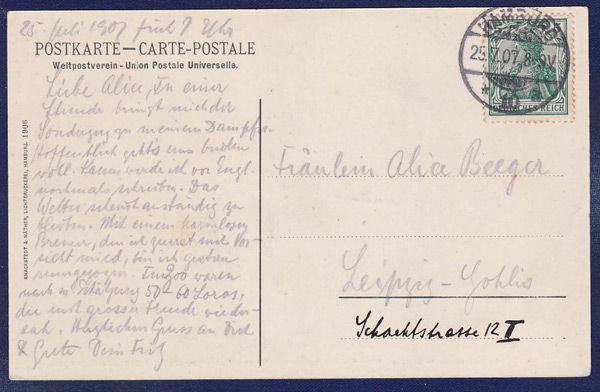 25. Juli 1907 früh 8 Uhr
POSTKARTE — CARTE-POSTALE
Weltpostverein - Union Postale Universelle.
Liebe Alice, In einer
Stunde bringt mich der
Sonderzug zu meinem Dampfer.
Hoffentlich geht's uns beiden
wohl. Kann werde ich von Engl.
nochmals schreiben. Das
Wetter scheint anständig zu
bleiben. Mit einem harmlosen
Bremer, den ich zuerst mit Vor-
sicht mied, bin ich gestern
Im Zoo waren
nach m. Schätzung 50-60 Loras,
die mit grosser Freude wieder-
sah. Herzlichen Gruss an Dich
& Grete Dein Fritz
KNACKSTEDT & NÄTHER, LICHTDRUCKEREI, HAMBURG. 1906
HAMBURG
25.7.07. 8-9V
* 1 *
DEUTSCHES REICH
Fräulein Alice Beeger
Leipzig-Gohlis
Schachtstrasse 12 I